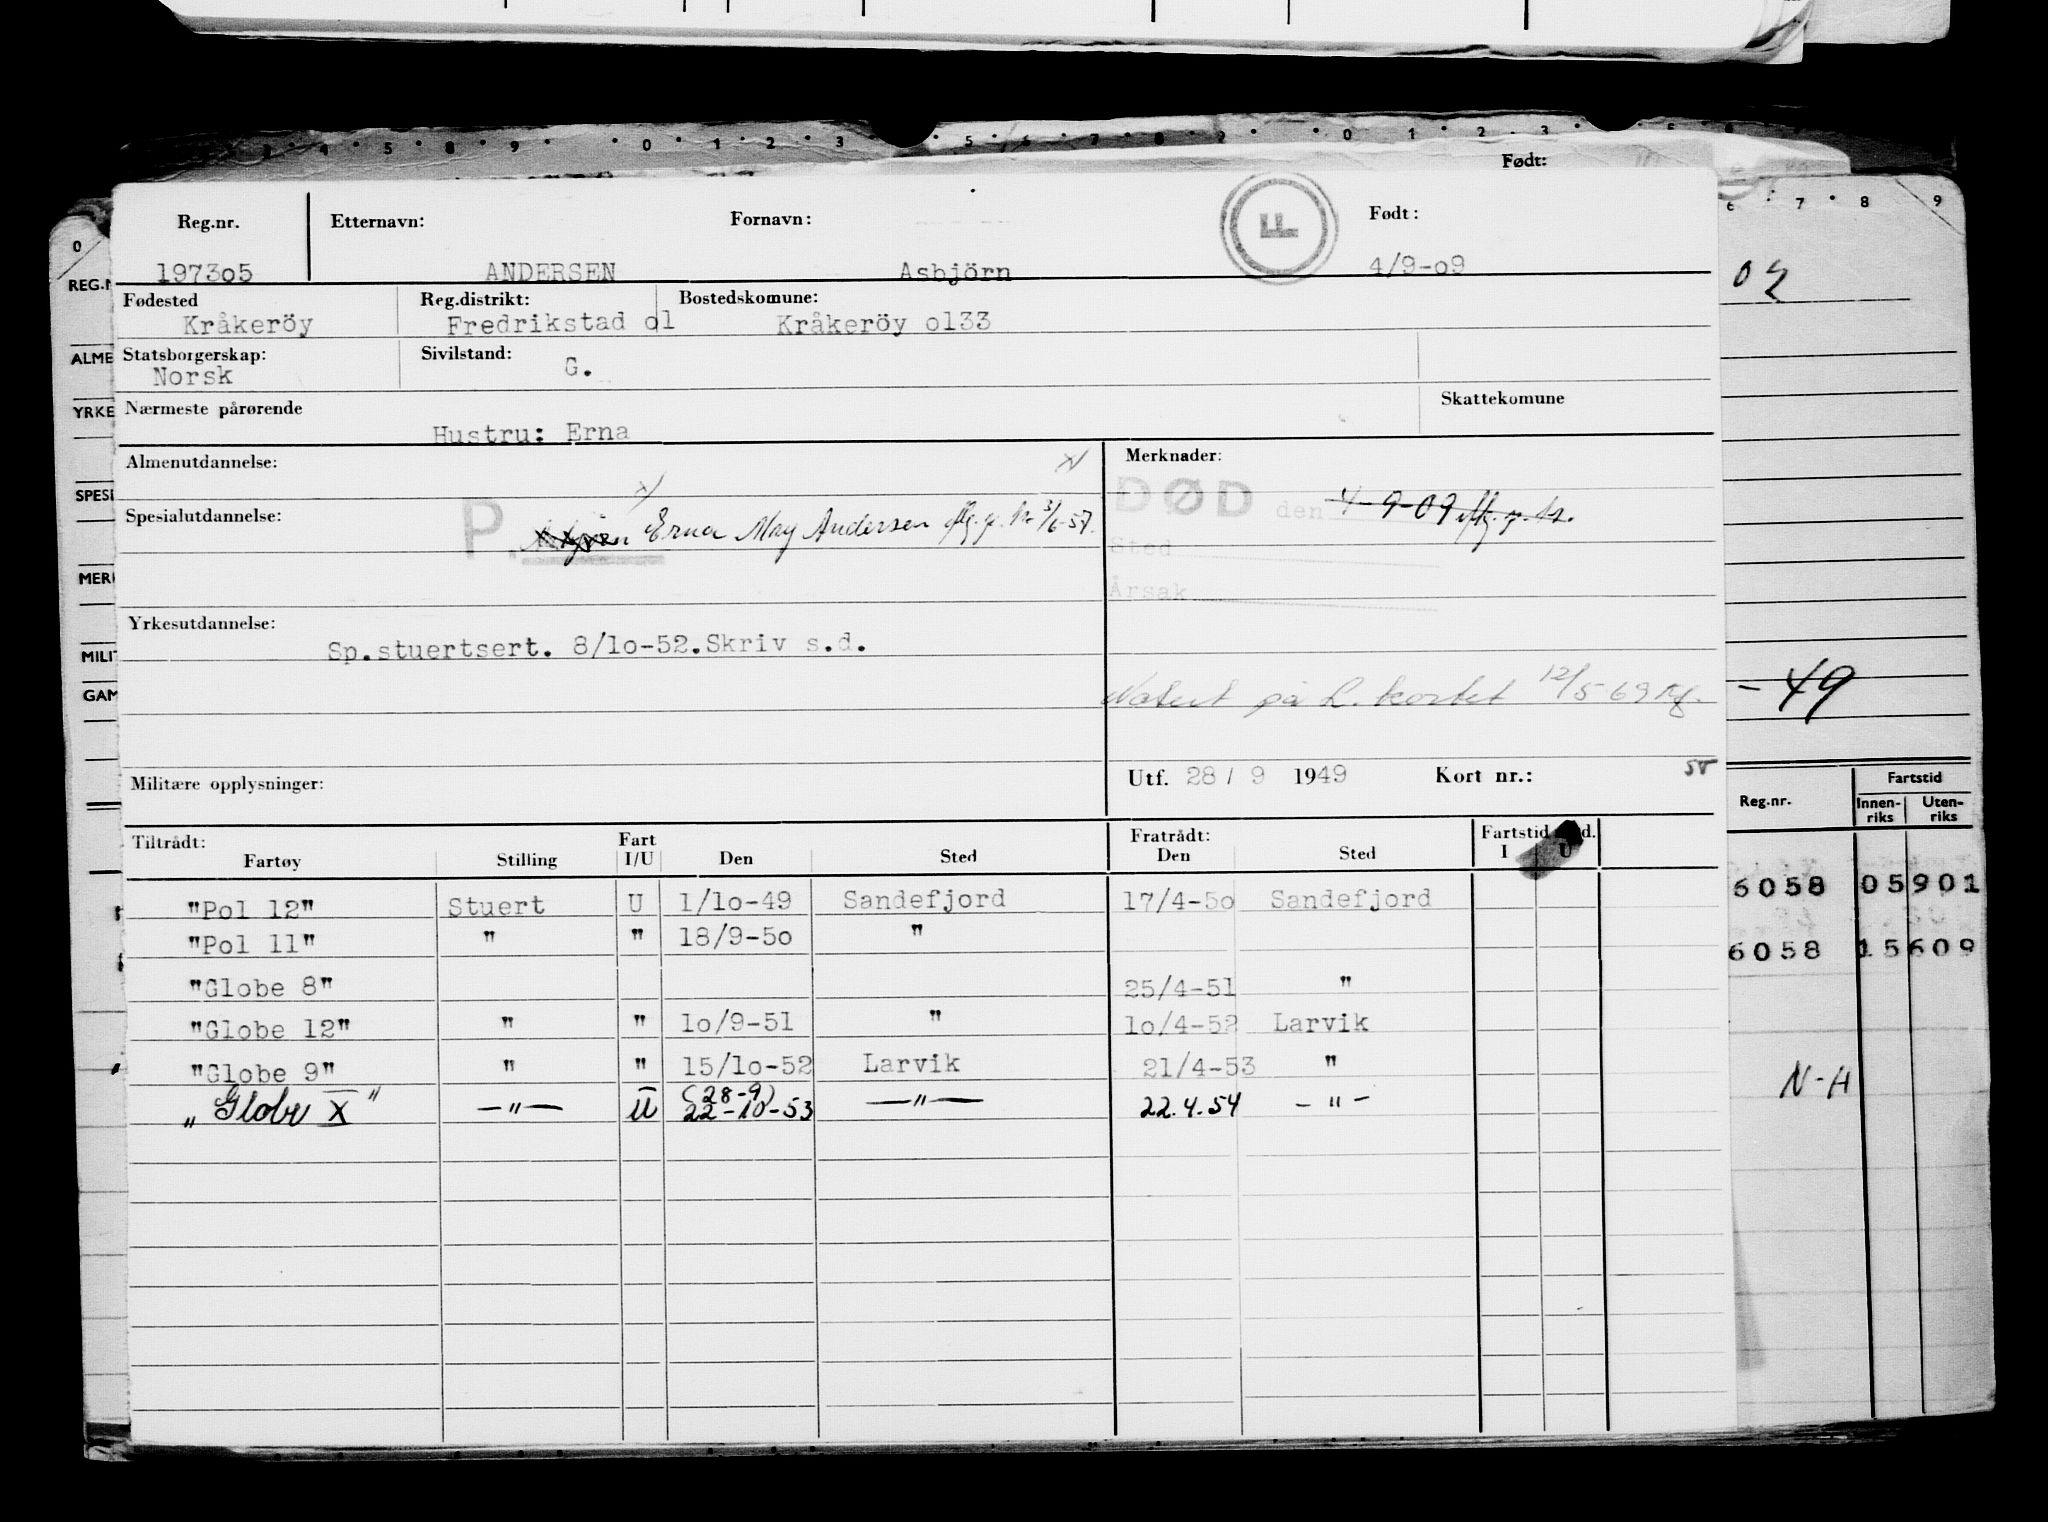 3 4 5 8 9 0 1 2 3 5 6 7 8 9 0 1 2 3 5 6
Født:
6 7 8 9
0
Reg.nr. Etternavn: Fornavn: F Født:
197305 ANDERSEN Asbjörn 4/9-09
REG.N
02
Fødested Reg.distrikt: Bostedskomune:
Kråkeröy Fredrikstad ol Kråkeröy ol33
ALME
Statsborgerskap: Sivilstand:
Norsk G.
YRKE
Nærmeste pårørende Skattekomune
Hustru: Erna
Almenutdannelse: Merknader:
SPESI
DØD den 4-9-09
Spesialutdannelse:
P. Erna May Andersen 3/6-57.
Sted
MERK
Årsak
Yrkesutdannelse:
Sp.stuertsert. 8/lo-52.Skriv s.d.
MILIT
GAM
Notert på L. kortet 12/5 69
- 49
Militære opplysninger: Utf. 28 / 9 1949 Kort nr.:
Reg.nr. Fartstid
Innen-riks Uten-riks
Tiltrådt: Fart Fratrådt: Fartstid d.
Fartøy Stilling I/U Den Sted Den Sted I U
"Pol 12" Stuert U 1/lo-49 Sandefjord 17/4-5o Sandefjord
6058 05901
"Pol 11" " " 18/9-5o "
6058 15609
"Globe 8" 25/4-51 "
"Globe 12" " " lo/9-51 " lo/4-52 Larvik
"Globe 9" " " 15/lo-52 Larvik 21/4-53 "
N-H
(28-9)
„Globe X" —"— U 22-10-53 —"— 22.4.54 -"-